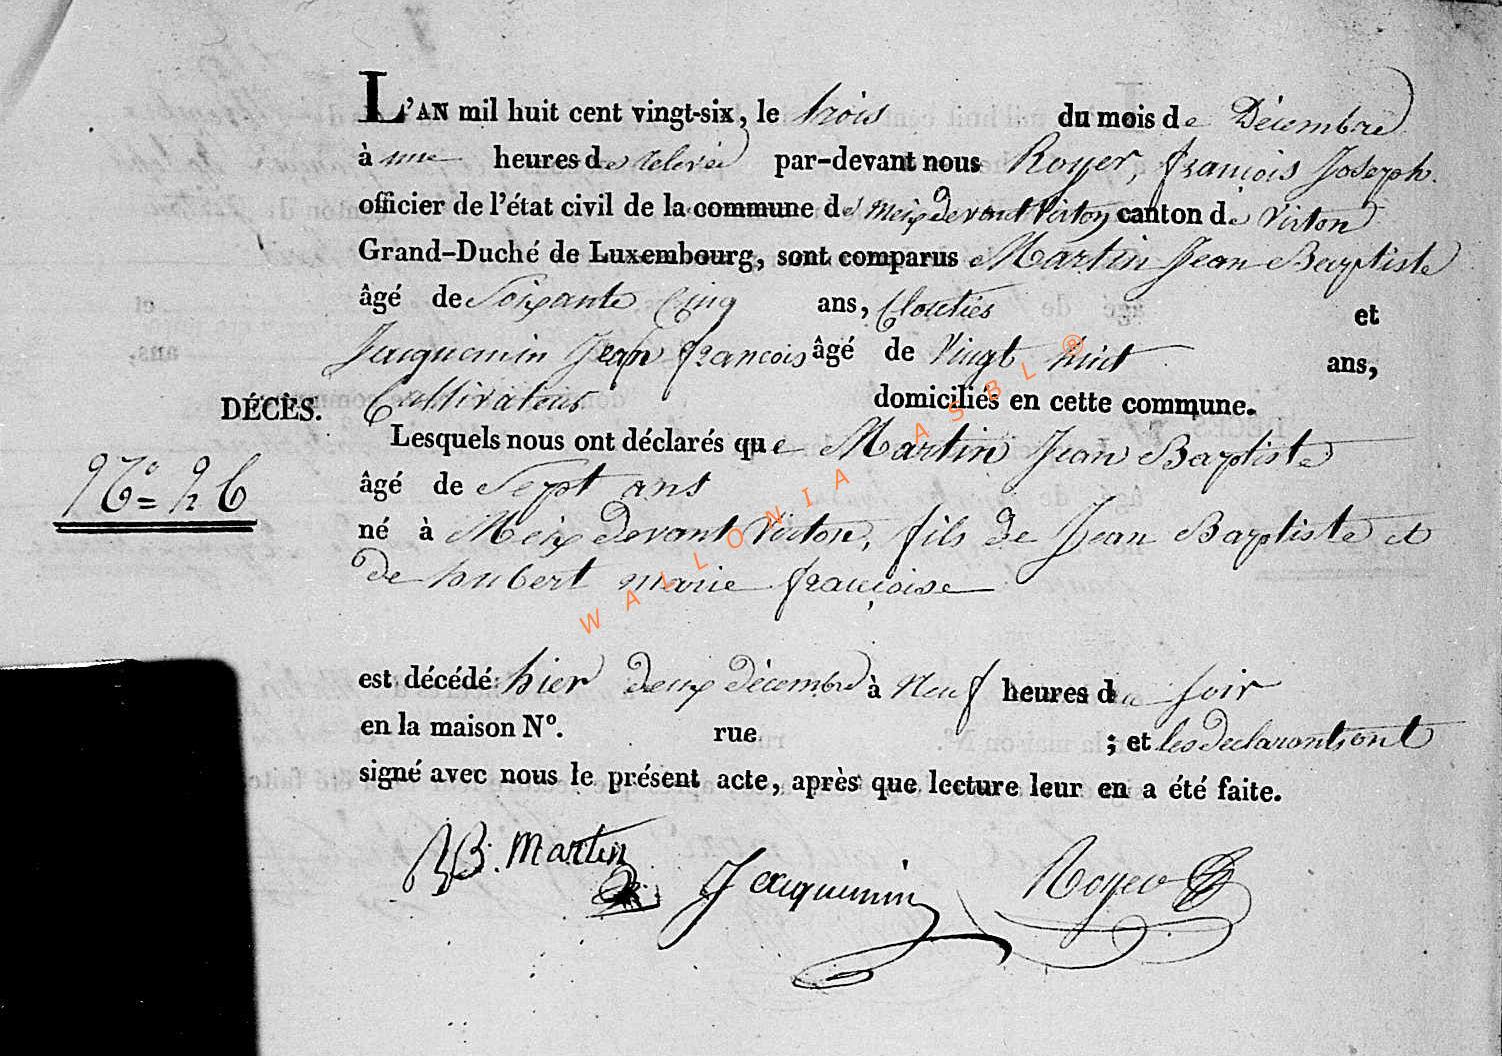 L'AN mil huit cent vingt-six, le trois du mois de Décembre
à une heures de relevée par-devant nous Royer, françois Joseph.
officier de l'état civil de la commune de Meix devant Virton canton de Virton
Grand-Duché de Luxembourg, sont comparus Martin Jean Baptiste
âgé de Soixante Cinq ans, Cloutier et
Jacquemin Jean francois âgé de Vingt huit ans,
DÉCÈS. Cultivateur domiciliés en cette commune.
Lesquels nous ont déclarés que Martin Jean Baptiste
N.º 26
âgé de Sept ans
né à Meix devant Virton, fils de Jean Baptiste et
de hubert marie françoise
est décédé hier deux décembre à Neuf heures du soir
en la maison Nº. rue ; et les declarants ont
signé avec nous le présent acte, après que lecture leur en a été faite.
JB. Martin Jacquemin Royer
WALLONIA ASBL ®